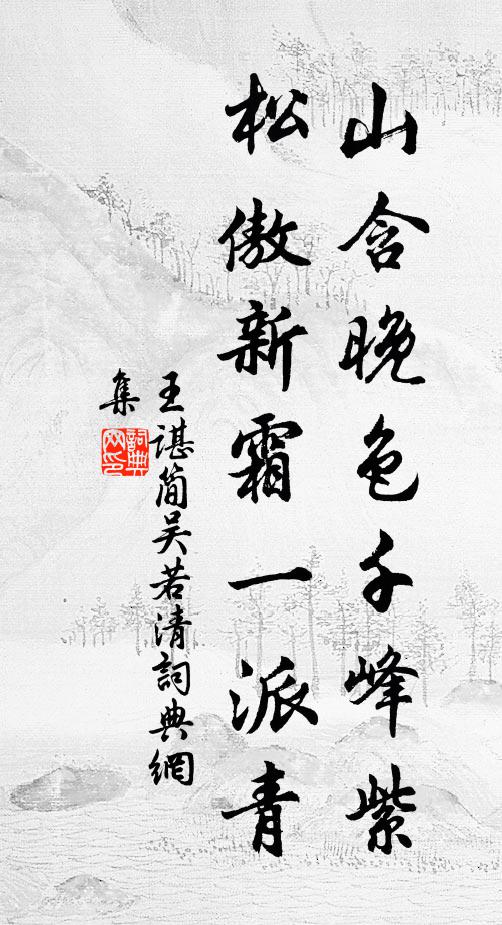 山含晚色千峰紫
松傲新霜一派青
王諶简吴若清詞典網
集
詞典
网印